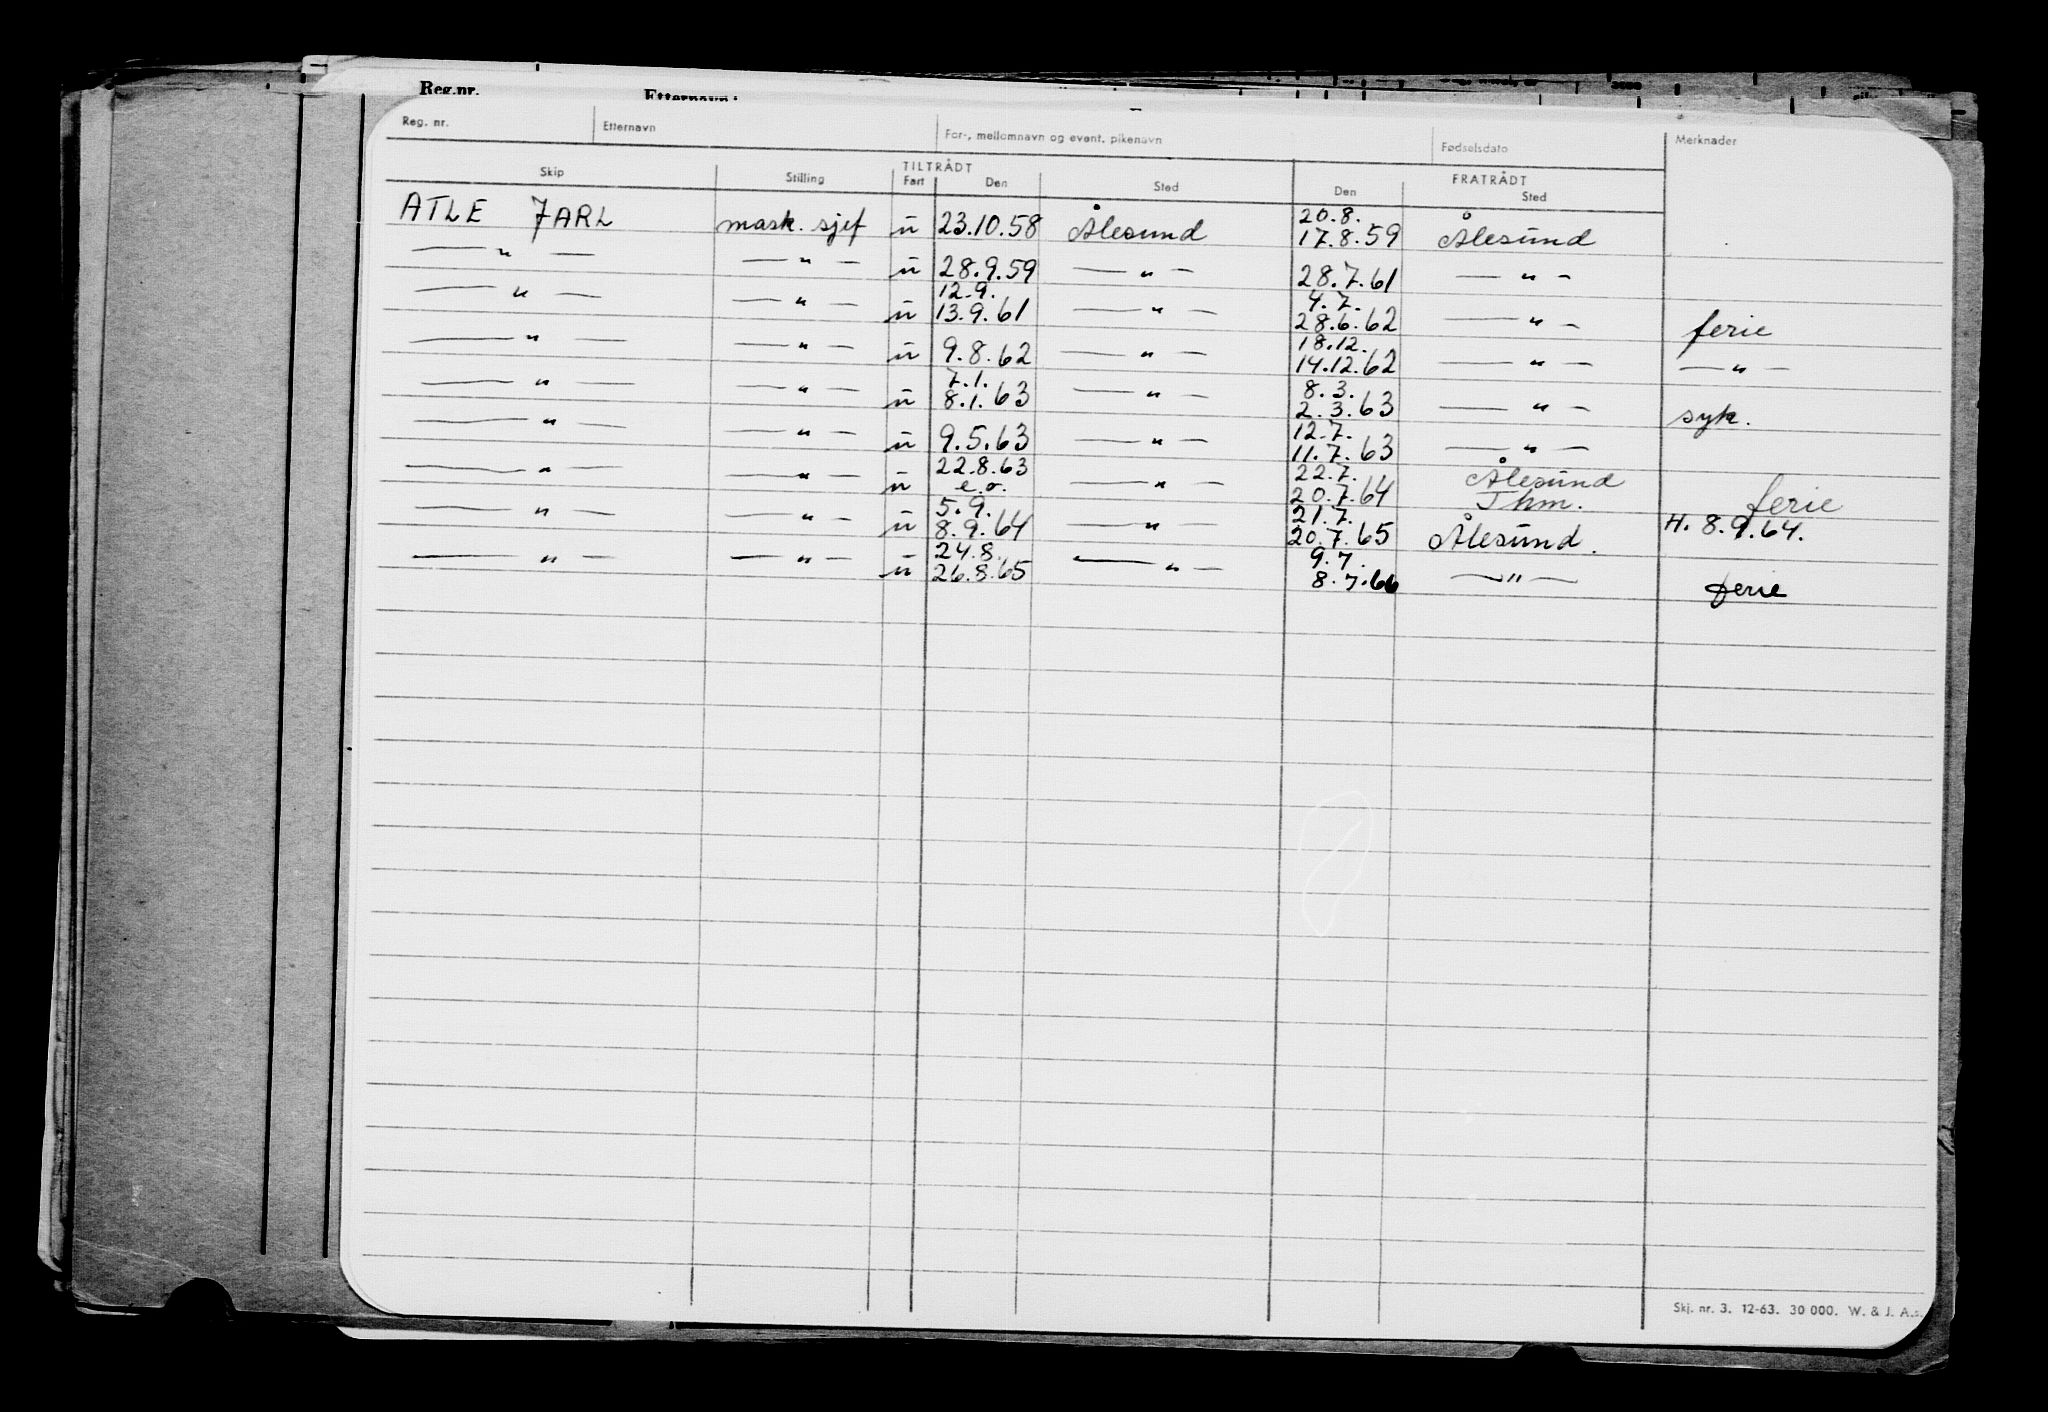 Reg.nr. Etternavn:
Reg. nr. Etternavn For-, mellomnavn og event. pikenavn Fødselsdato Merknader
TILTRÅDT FRATRÅDT
Skip Stilling Fart Den Sted Den Sted
20.8.
ATLE JARL mask. sjef ū 23.10.58 Ålesund 17.8.59 Ålesund
— " — — " — ū 28.9.59 — " — 28.7.61 — " —
12.9. 4.7.
— " — — " — ū 13.9.61 — " — 28.6.62 — " — ferie
18.12.
— " — — " — ū 9.8.62 — " — 14.12.62 — " — — " —
7.1. 8.3.
— " — — " — ū 8.1.63 — " — 2.3.63 — " — syk.
12.7.
— " — — " — ū 9.5.63 — " — 11.7.63 — " —
22.8.63 22.7. Ålesund
— " — — " — ū e.o. — " — 20.7.64 Thm. ferie
5.9. 21.7.
— " — — " — ū 8.9.64 — " — 20.7.65 Ålesund. H. 8.9.64.
24.8. 9.7.
— " — — " — ū 26.8.65 — " — 8.7.66 — " — ferie
Skj. nr. 3. 12-63. 30 000. W. & J. A.s.